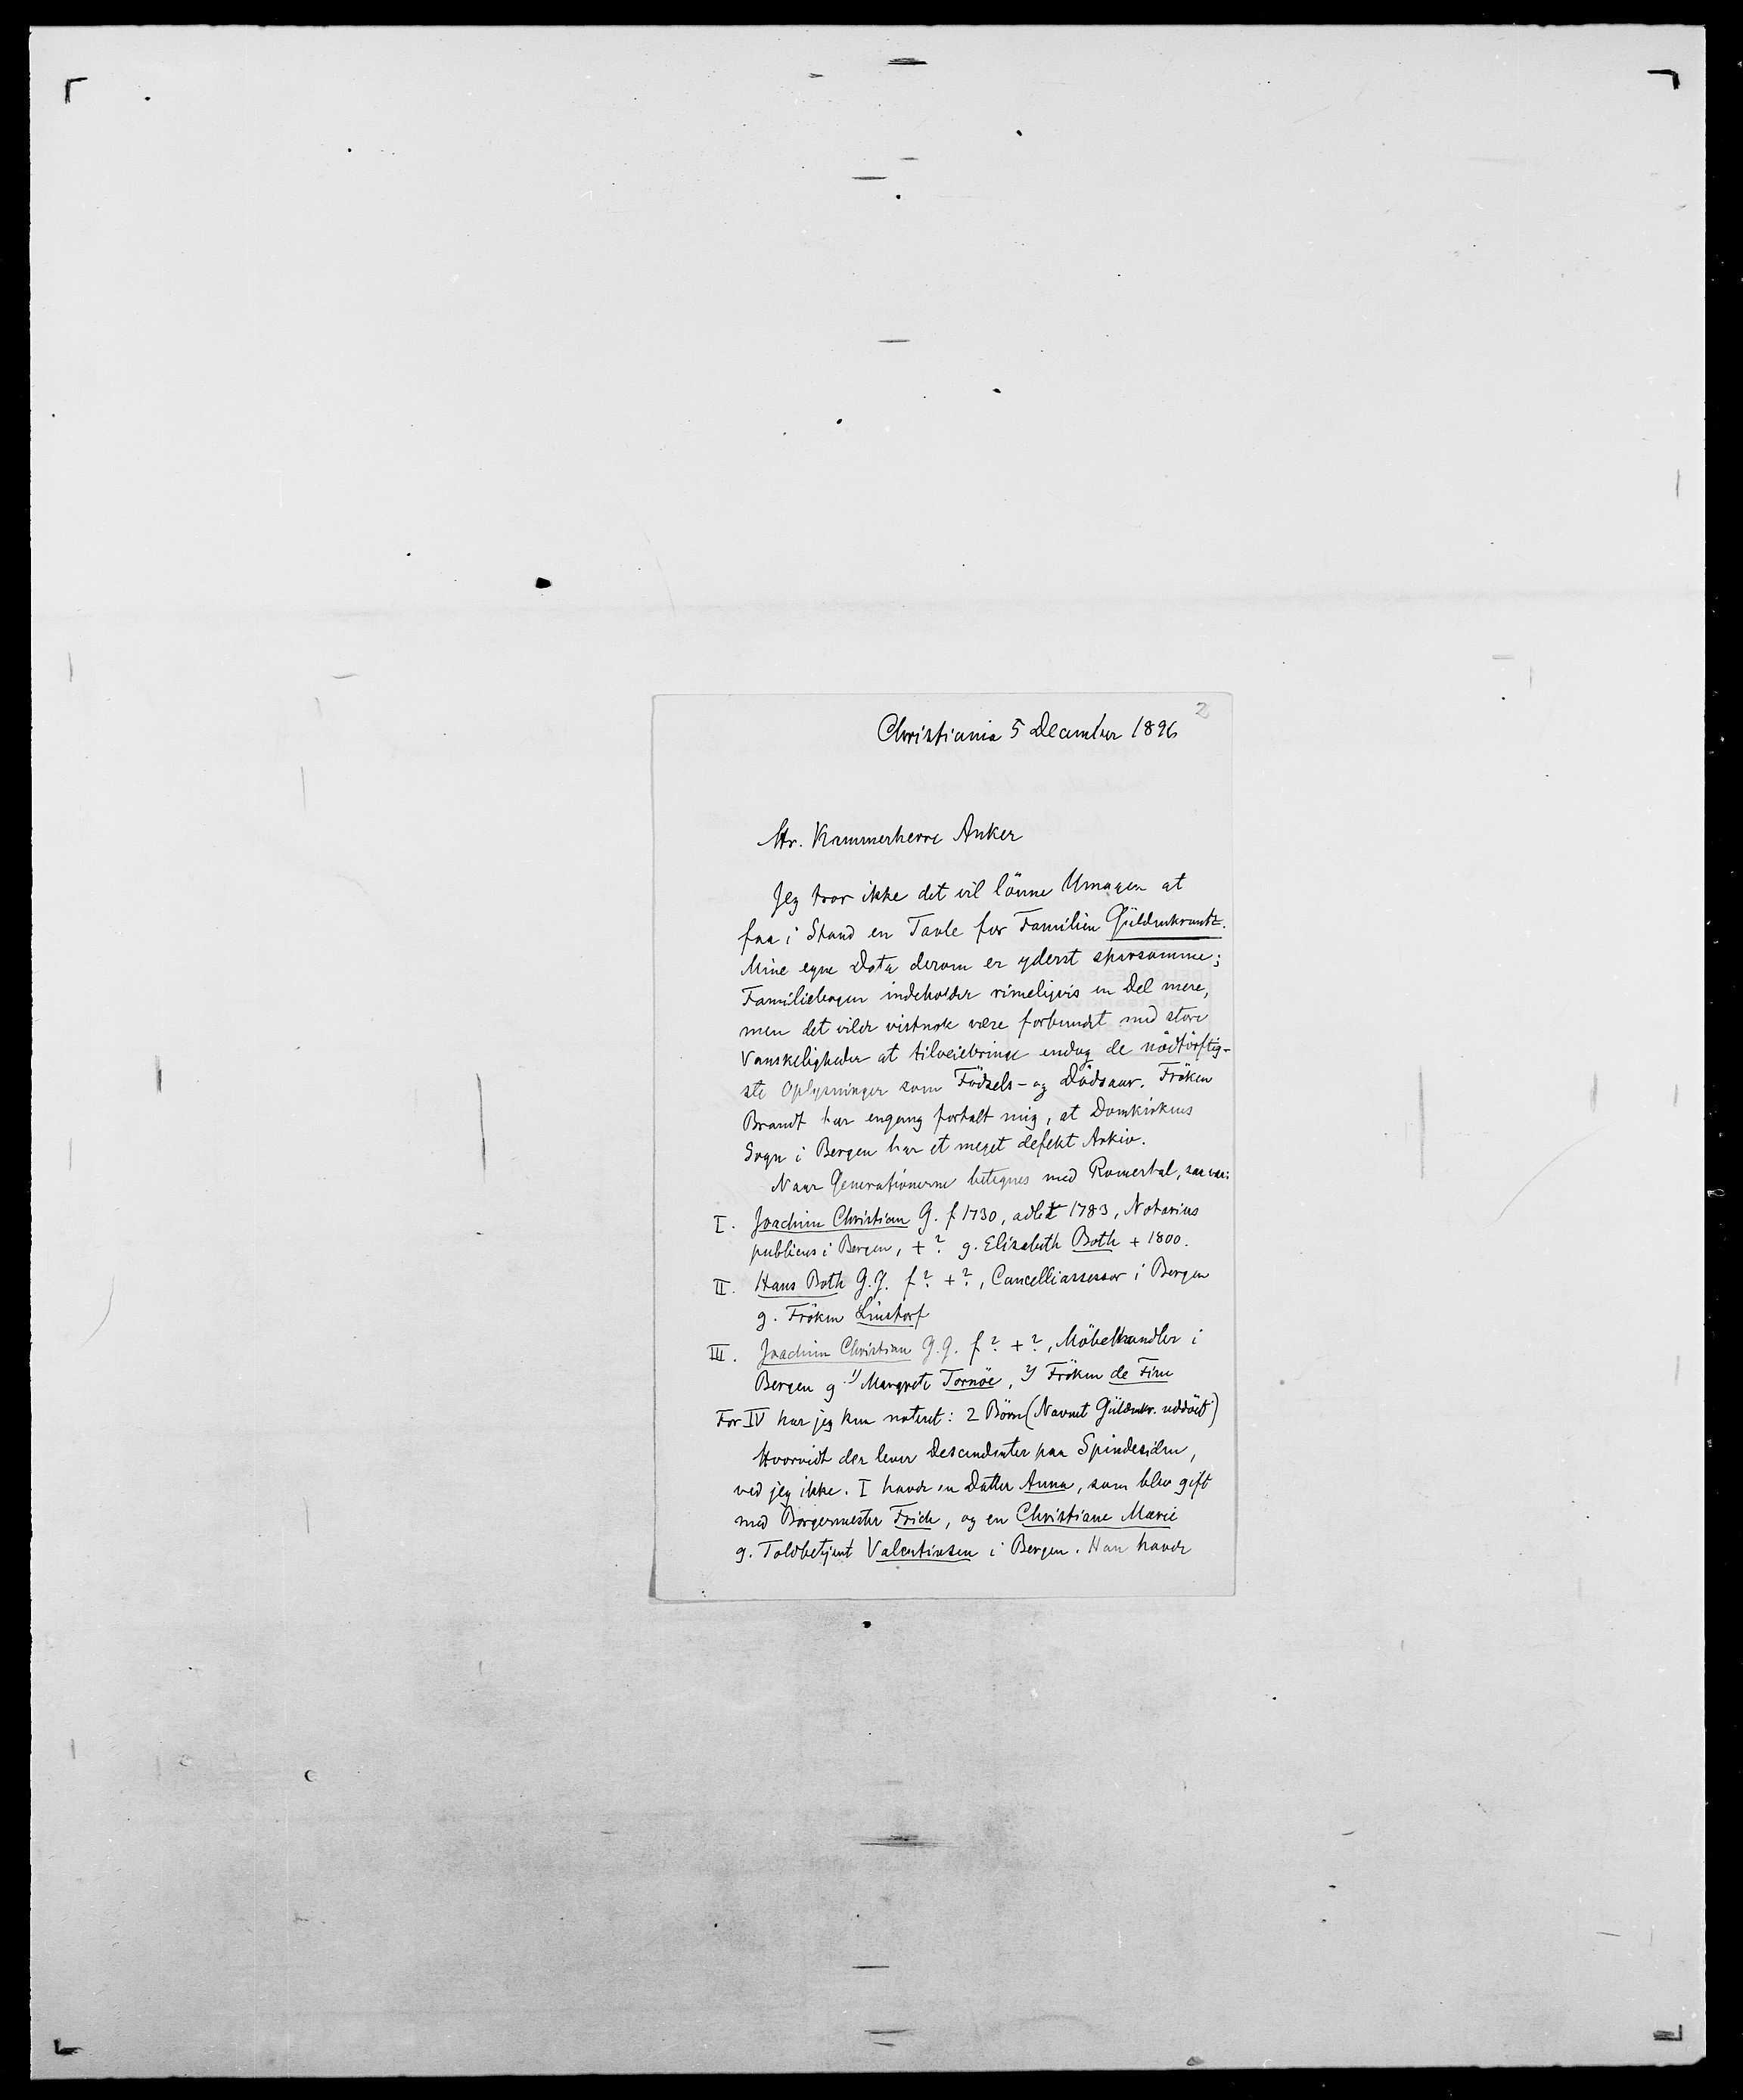 2
Christiania 5 December 1896
Hr. Kammerherre Anker
Jeg tror ikke det vil lönne Umagen at
faa i Stand en Tavle for Familien Güldenkrantz.
Mine egne Data derom er yderst sparsomme;
Familiebogen indeholder rimeligvis en Del mere,
men det vilde vistnok være forbundet med store
Vanskeligheder at tilveiebringe endog de nödtörftig-
ste Oplysninger som Födsels- og Dödsaar. Fröken
Brandt har engang fortalt mig, at Domkirkens
Sogn i Bergen har et meget defekt Arkiv.
Naar Generationerne betegnes med Romertal, saa var:
I. Joachim Christian G. f 1730, adlet 1783, Notarius
publicus i Bergen, +? g. Elisabeth Both + 1800.
II. Hans Both G.G. f? +?, Cancelliassessor i Bergen
g. Fröken Lüstorf
III. Joachim Christian G.G. f? +?, Möbelhandler i
Bergen g 1) Margrete Tornöe, 2) Fröken de Fine
For IV har jeg kun noteret: 2 Börn (Navnet Güldenkr. uddöet)
Hvorvidt der lever Descendenter paa Spindesiden,
ved jeg ikke. I havde en Datter Anna, som blev gift
med Borgermester Frich, og en Christiane Marie
g. Toldbetjent Valentinsen i Bergen. Han havde